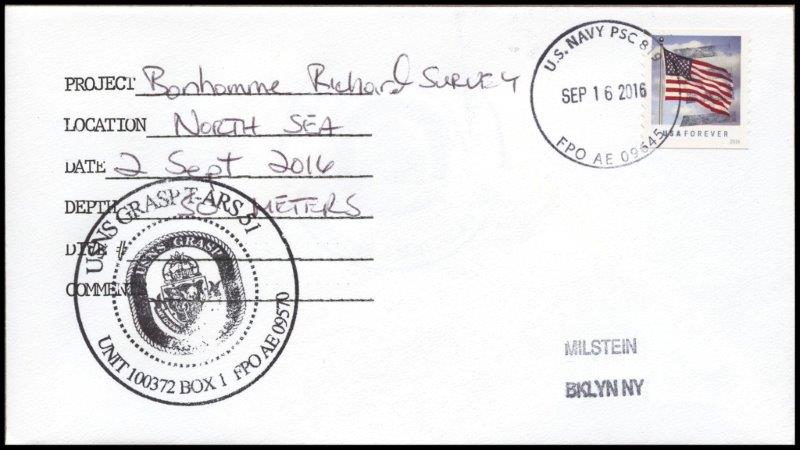 PROJECT Bonhomme Richard Survey
LOCATION North Sea
DATE 2 Sept 2016
DEPTH METERS
DIVE #
COMMENTS
U.S. NAVY PSC 819
SEP 16 2016
FPO AE 09645
USA FOREVER
2016
USNS GRASP T-ARS 51
USNS GRASP
UNIT 100372 BOX 1 FPO AE 09570
MILSTEIN
BKLYN NY